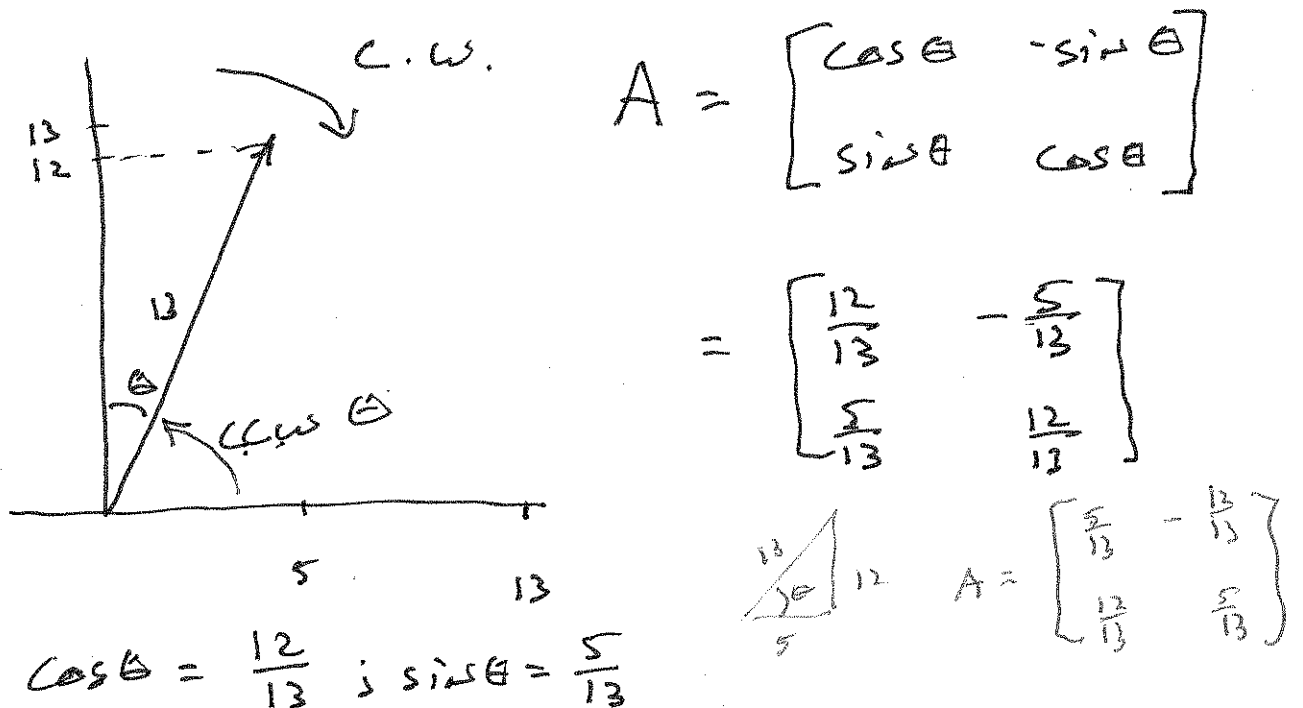 C.W.
13
12
13
θ
CCW θ
5
13
cos θ = 12/13 ; sin θ = 5/13
A = [cos θ -sin θ
sin θ cos θ]
= [12/13 - 5/13
5/13 12/13]
13
θ
12
5
A = [5/13 - 12/13
12/13 5/13]